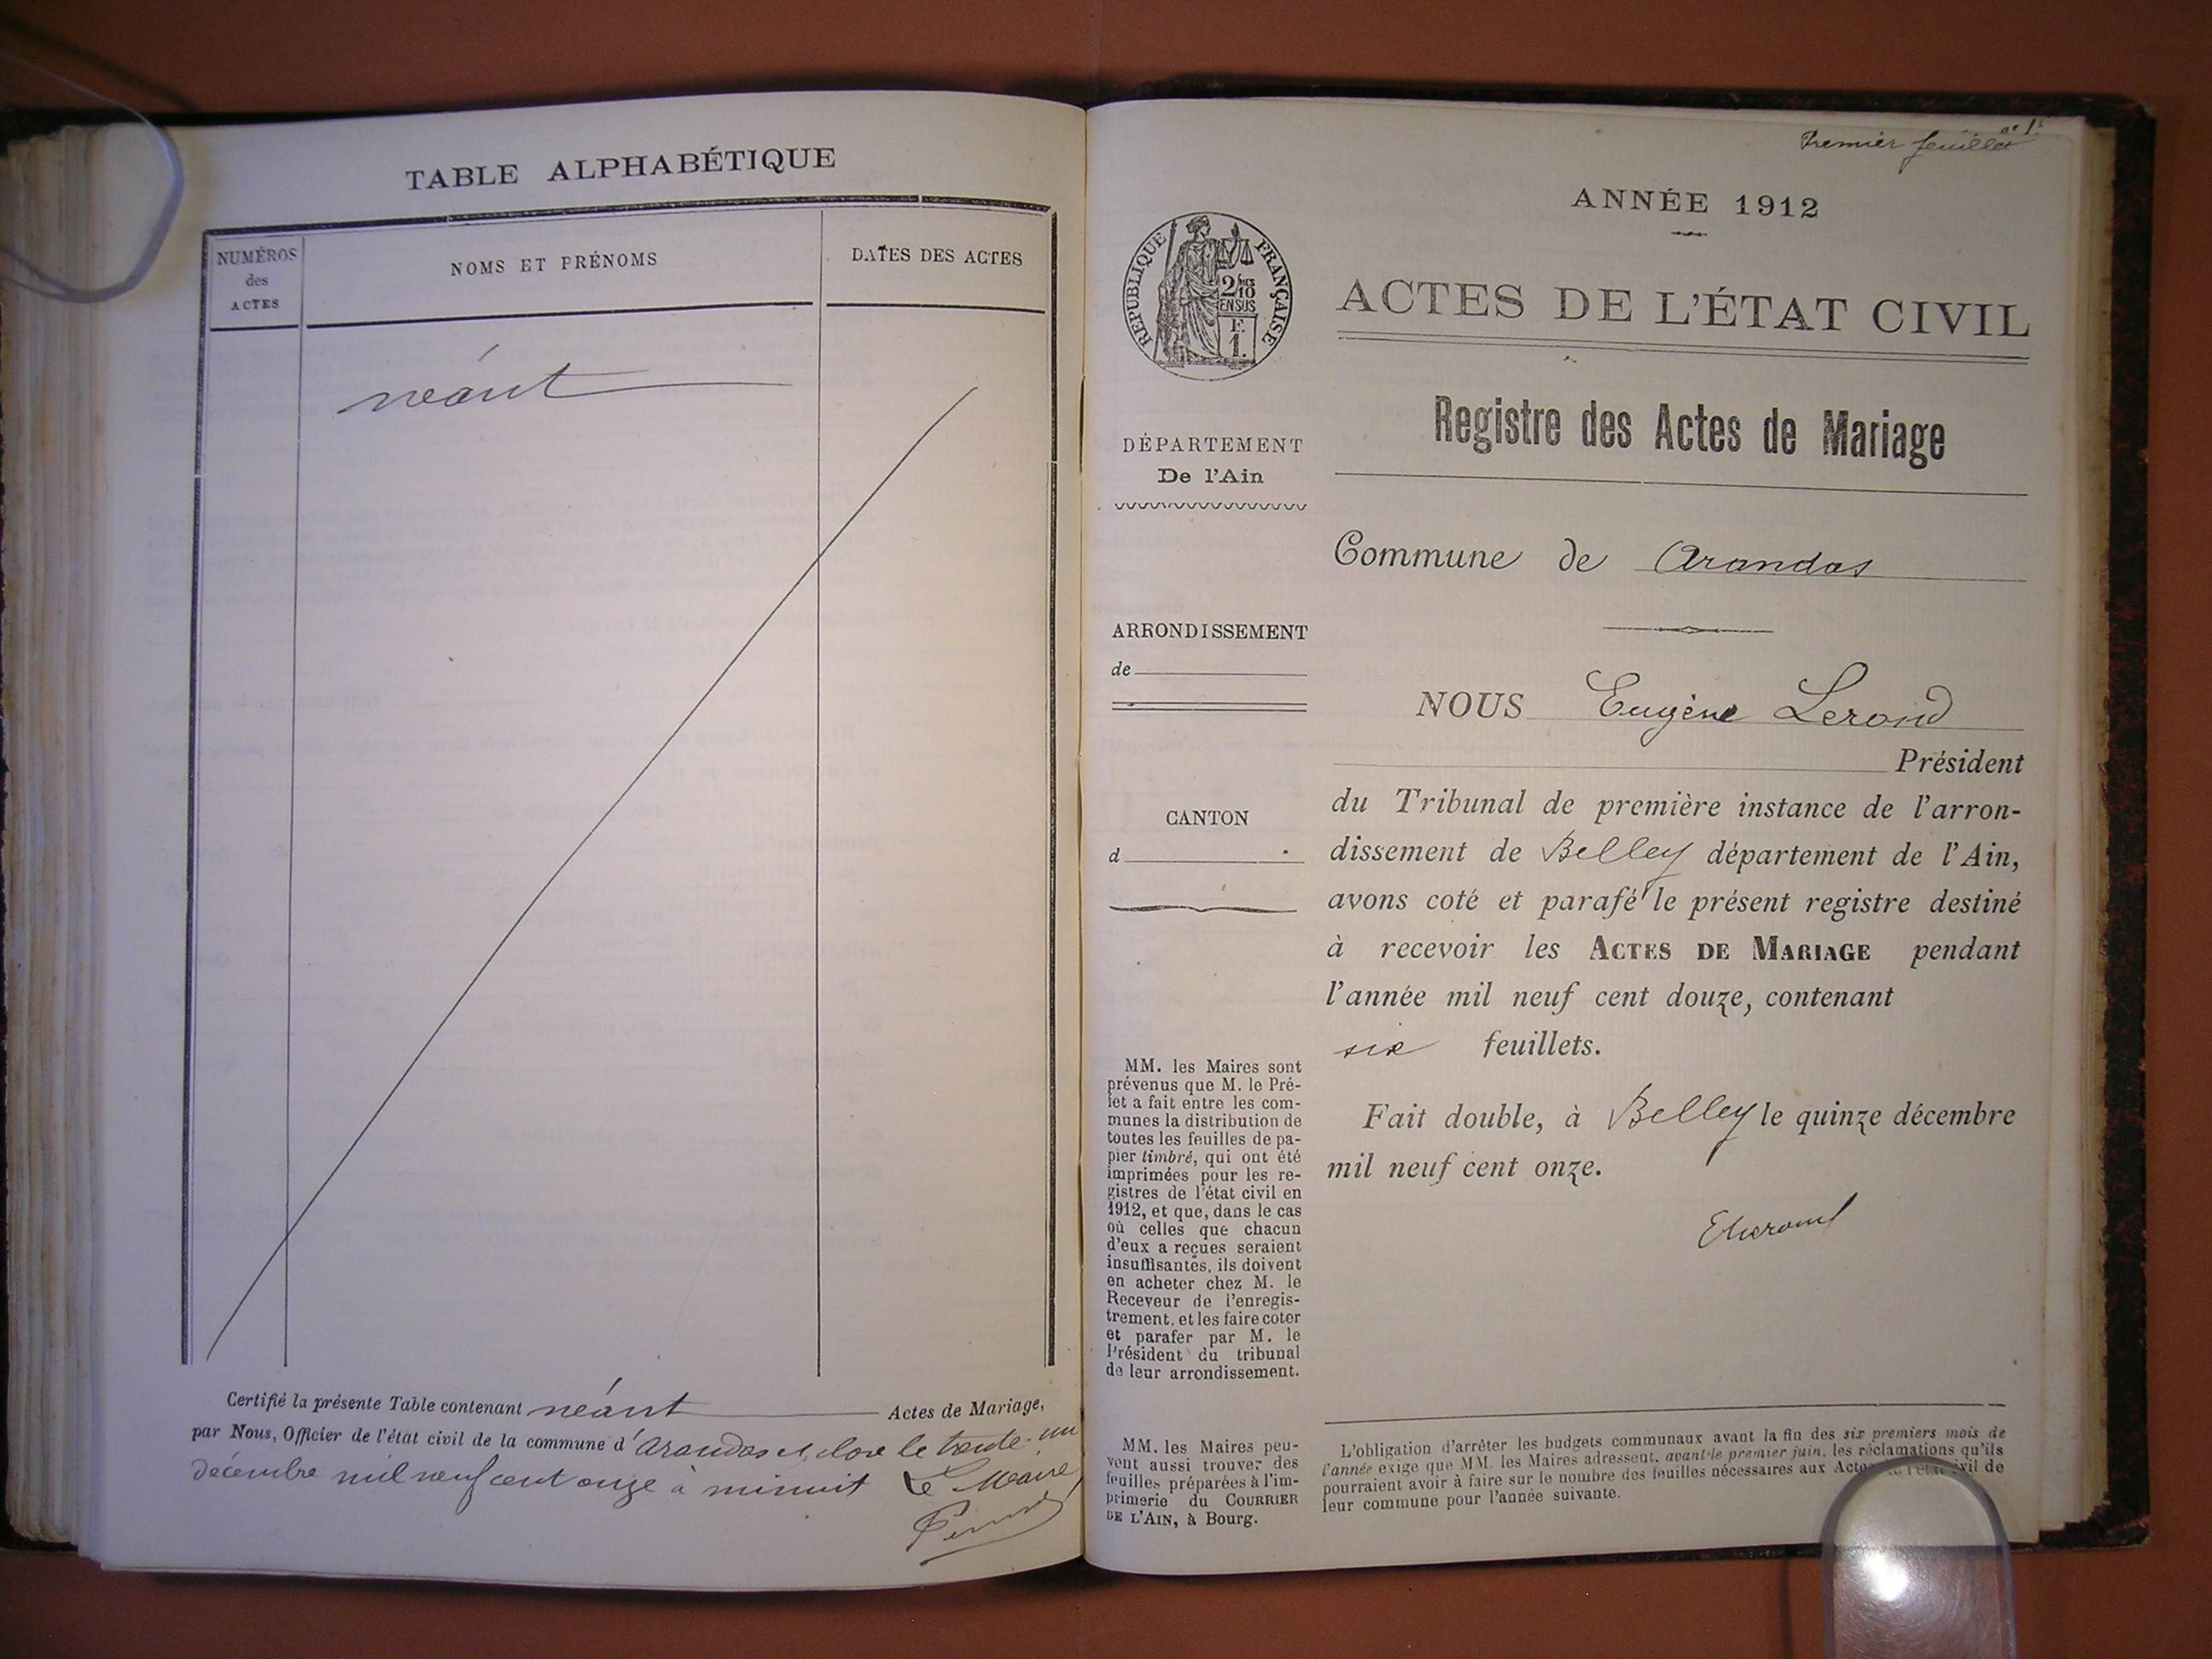 TABLE ALPHABÉTIQUE
NUMÉROS
des
ACTES
NOMS ET PRÉNOMS
DATES DES ACTES
néant
Certifié la présente Table contenant néant Actes de Mariage,
par Nous, Officier de l'état civil de la commune d'Arandas et close le trente-un
décembre mil neuf cent onze à minuit Le Maire
Premier feuillet n° 1
ANNÉE 1912
RÉPUBLIQUE FRANÇAISE
2/10
EN SUS
F.
1.
ACTES DE L'ÉTAT CIVIL
Registre des Actes de Mariage
DÉPARTEMENT
De l'Ain
Commune de Arandas
ARRONDISSEMENT
de
CANTON
d
NOUS Eugène Lerond
Président
du Tribunal de première instance de l'arron-
dissement de Belley département de l'Ain,
avons coté et parafé le présent registre destiné
à recevoir les ACTES DE MARIAGE pendant
l'année mil neuf cent douze, contenant
six feuillets.
Fait double, à Belley le quinze décembre
mil neuf cent onze.
ELerond
MM. les Maires sont
prévenus que M. le Pré-
fet a fait entre les com-
munes la distribution de
toutes les feuilles de pa-
pier timbré, qui ont été
imprimées pour les re-
gistres de l'état civil en
1912, et que, dans le cas
où celles que chacun
d'eux a reçues seraient
insuffisantes, ils doivent
en acheter chez M. le
Receveur de l'enregis-
trement, et les faire coter
et parafer par M. le
Président du tribunal
de leur arrondissement.
MM. les Maires peu-
vent aussi trouver des
feuilles préparées à l'im-
primerie du COURRIER
DE L'AIN, à Bourg.
L'obligation d'arrêter les budgets communaux avant la fin des six premiers mois de
l'année exige que MM. les Maires adressent, avant le premier juin, les réclamations qu'ils
pourraient avoir à faire sur le nombre des feuilles nécessaires aux Actes de l'état civil de
leur commune pour l'année suivante.